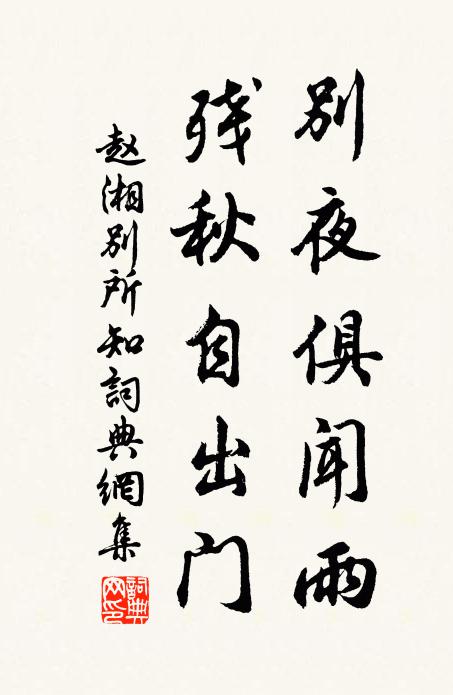 别夜俱闻雨
残秋自出门
赵湘别所知詞典網集
詞典網印